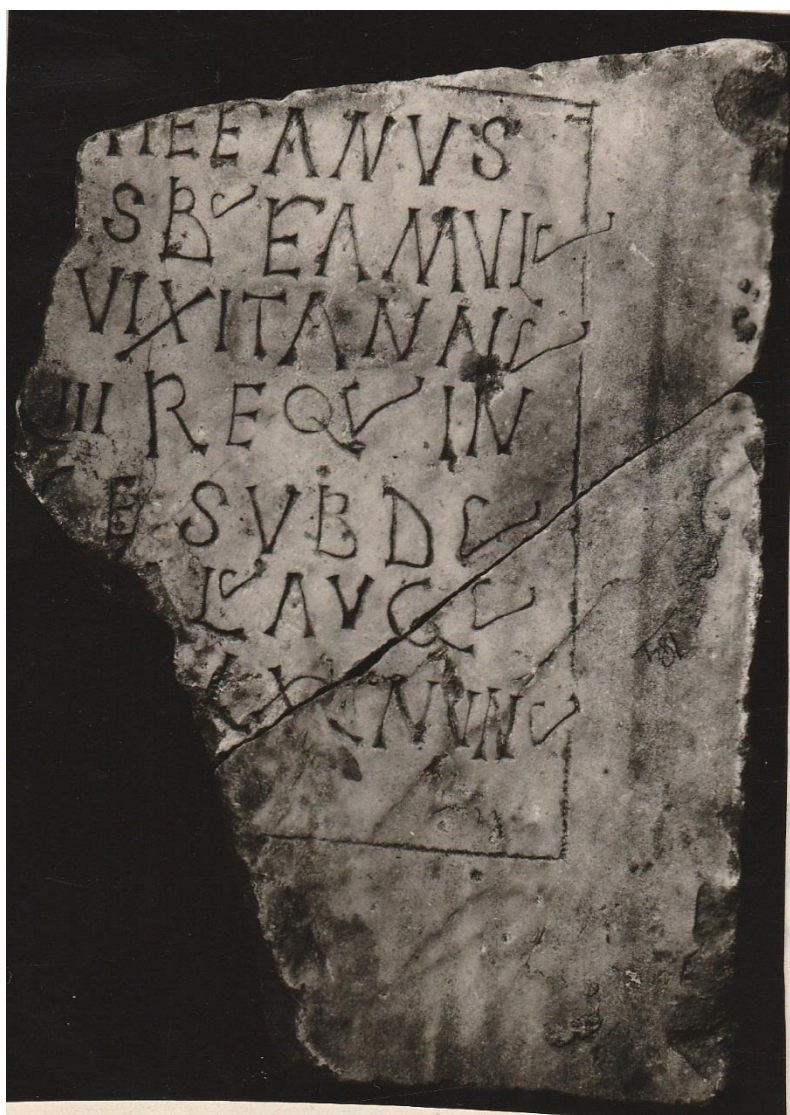 EFANVS
SB FAMVL
VIXIT ANN
III REQV IN
E SVB D
L AVG